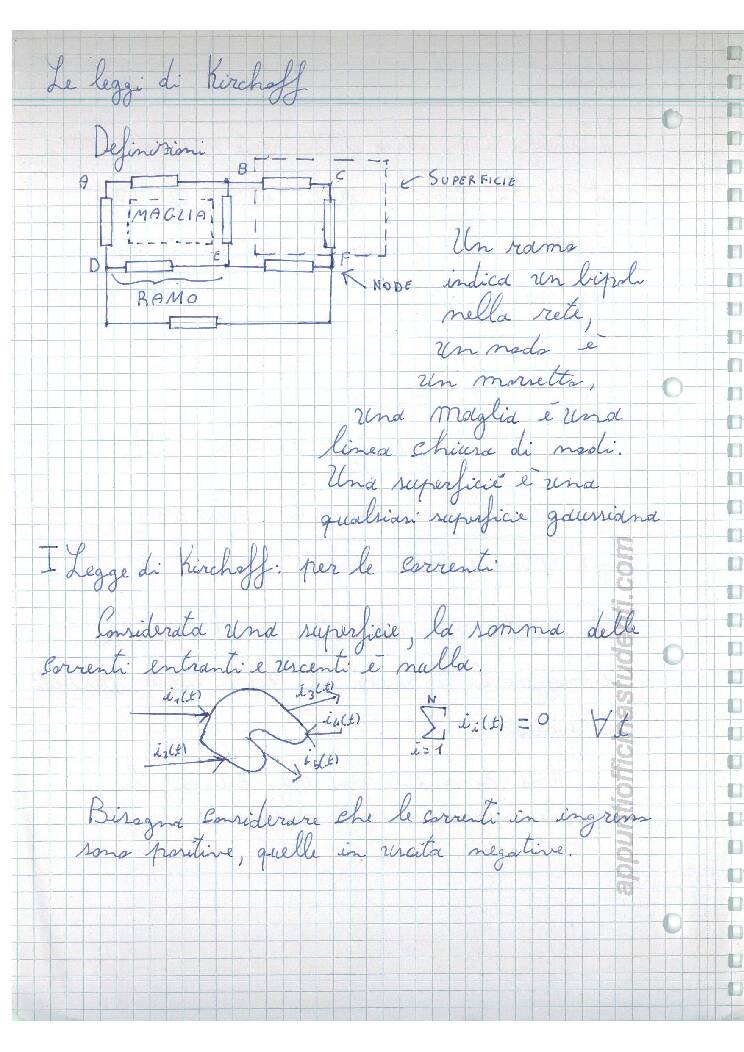 Le leggi di Kirchoff
Definizioni
A
B
C
SUPERFICIE
MAGLIA
D
E
F
NODE
RAMO
Un ramo
indica un bipolo
nella rete,
un nodo è
un morsetto,
una maglia è una
linea chiusa di nodi.
Una superficie è una
qualsiasi superficie gaussiana
I Legge di Kirchoff: per le correnti
Considerata una superficie, la somma delle
correnti entranti e uscenti è nulla.
i₁(t)
i₃(t)
i₄(t)
i₂(t)
i₅(t)
N ∑ i=1 iᵢ(t) = 0 ∀t
Bisogna considerare che le correnti in ingresso
sono positive, quelle in uscita negative.
appuntiofficinastudenti.com